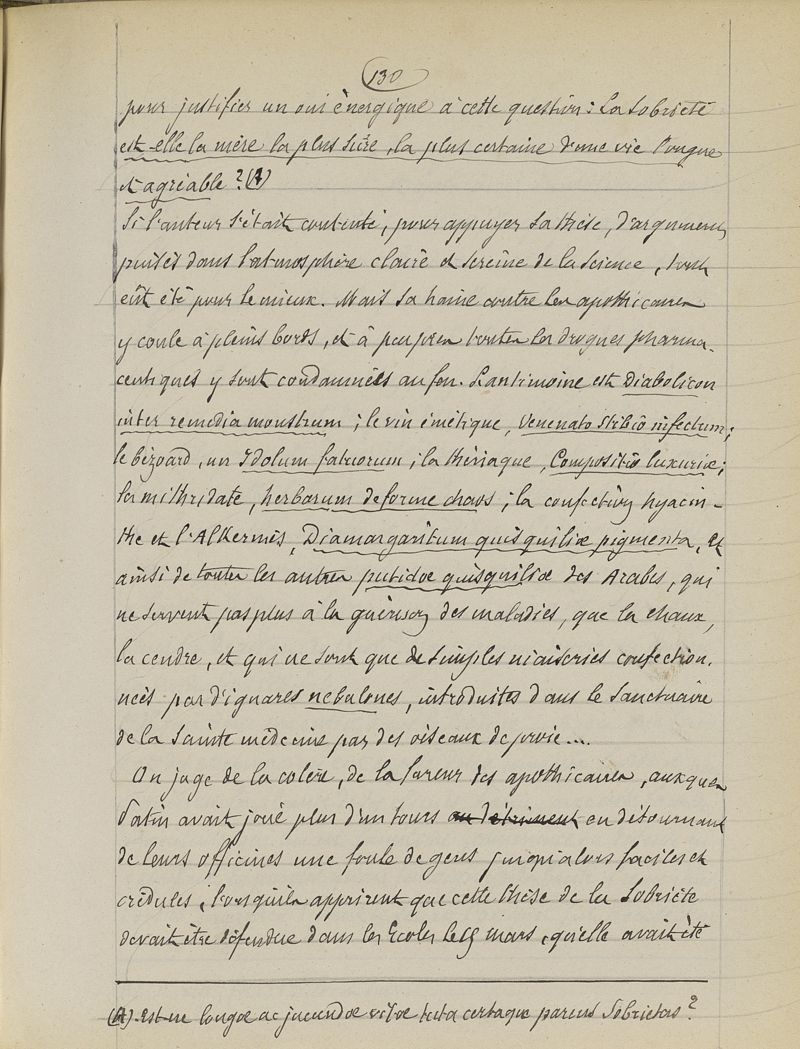 130
pour justifier un oui énergique à cette question : La Sobriété
est-elle la mère la plus sûre, la plus certaine d'une vie longue
et agréable ? (A)
Si l'auteur s'était contenté, pour appuyer sa thèse, d'arguments
puisés dans l'atmosphère claire et sereine de la science, tout
eût été pour le mieux. Mais sa haine contre les apothicaires
y coule à pleins bords, et à peu près toutes les drogues pharma-
ceutiques y sont condamnées au feu. L'antimoine est Diabolicon
inter remedia monstrum ; le vin émétique, Venenato Stibio infectum ;
le bézoard, un Idolum fatuorum ; la thériaque, Compositio luxuriæ ;
la mithridate, herbarum deforme chaos ; la confection hyacin-
the et l'Alkermès, Diamargaritum quisquiliæ pigmenta, et
ainsi de toutes les autres putidæ quisquiliæ des Arabes, qui
ne servent pas plus à la guérison des maladies, que la chaux,
la cendre, et qui ne sont que de simples niaiseries confection-
nées par d'ignares nebulones, introduites dans le Sanctuaire
de la Sainte médecine par des oiseaux de proie....
On juge de la colère, de la fureur des apothicaires, auxquels
Patin avait joué plus d'un tours au détriment en détournant
de leurs officines une foule de gens jusqu'alors faciles et
crédules, lorsqu'ils apprirent que cette thèse de la Sobriété
devait être défendue dans les Ecoles le 15 mars, qu'elle avait été
(A). Est-ne longæ ac jucundæ vitæ tuta certaque parens Sobrietas ?